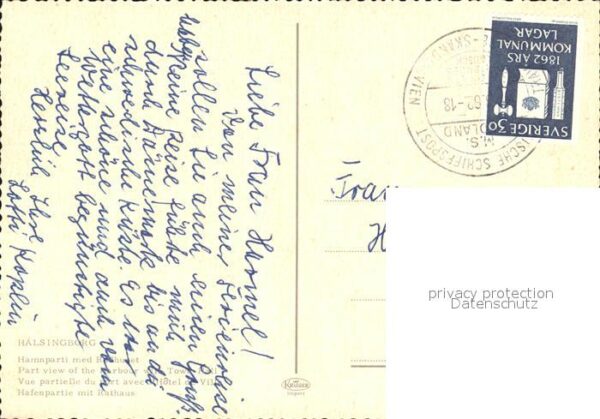 Liebe Frau Hammel!
Von meiner Ferienreise
sollen Sie auch einen Gruß
haben. Meine Reise führte mich
durch Dänemark bis an die
schwedische Küste. Es war
eine schöne und auch vom
Wettergott begünstigte
Seereise
Herzlich Ihre
HÄLSINGBORG
Hamnparti med Rådhuset
Part view of the harbour with Town Hall
Vue partielle du port avec l'Hôtel de Ville
Hafenpartie mit Rathaus
Krüger
import
SVERIGE 30
1862 ÅRS
KOMMUNAL
LAGAR
ISCHE SCHIFFSPOST
M.S.
62-18
Frau
H
privacy protection
Datenschutz